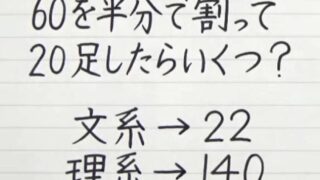 60を半分で割って
20足したらいくつ？
文系→22
理系→140